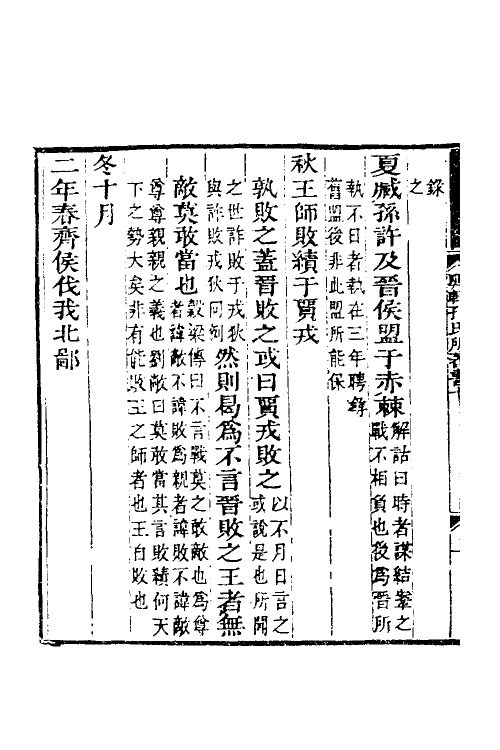 錄
之
夏臧孫許及晉侯盟于赤棘解詁曰時者謀結鞌之
戰不相負也後為晉所
執不日者執在三年聘錄
舊盟後非此盟所能保
秋王師敗績于貿戎
孰敗之蓋晉敗之或曰貿戎敗之以不月日言之
或說是也所聞
之世詐敗于戎狄
與詐敗戎狄同例然則曷為不言晉敗之王者無
敵莫敢當也穀梁傳曰不言戰莫之敢敵也為尊
者諱敵不諱敗為親者諱敗不諱敵
尊尊親親之義也劉敞曰莫敢當其言敗績何天
下之勢大矣非有能敗王之師者也王自敗也
冬十月
二年春齊侯伐我北鄙